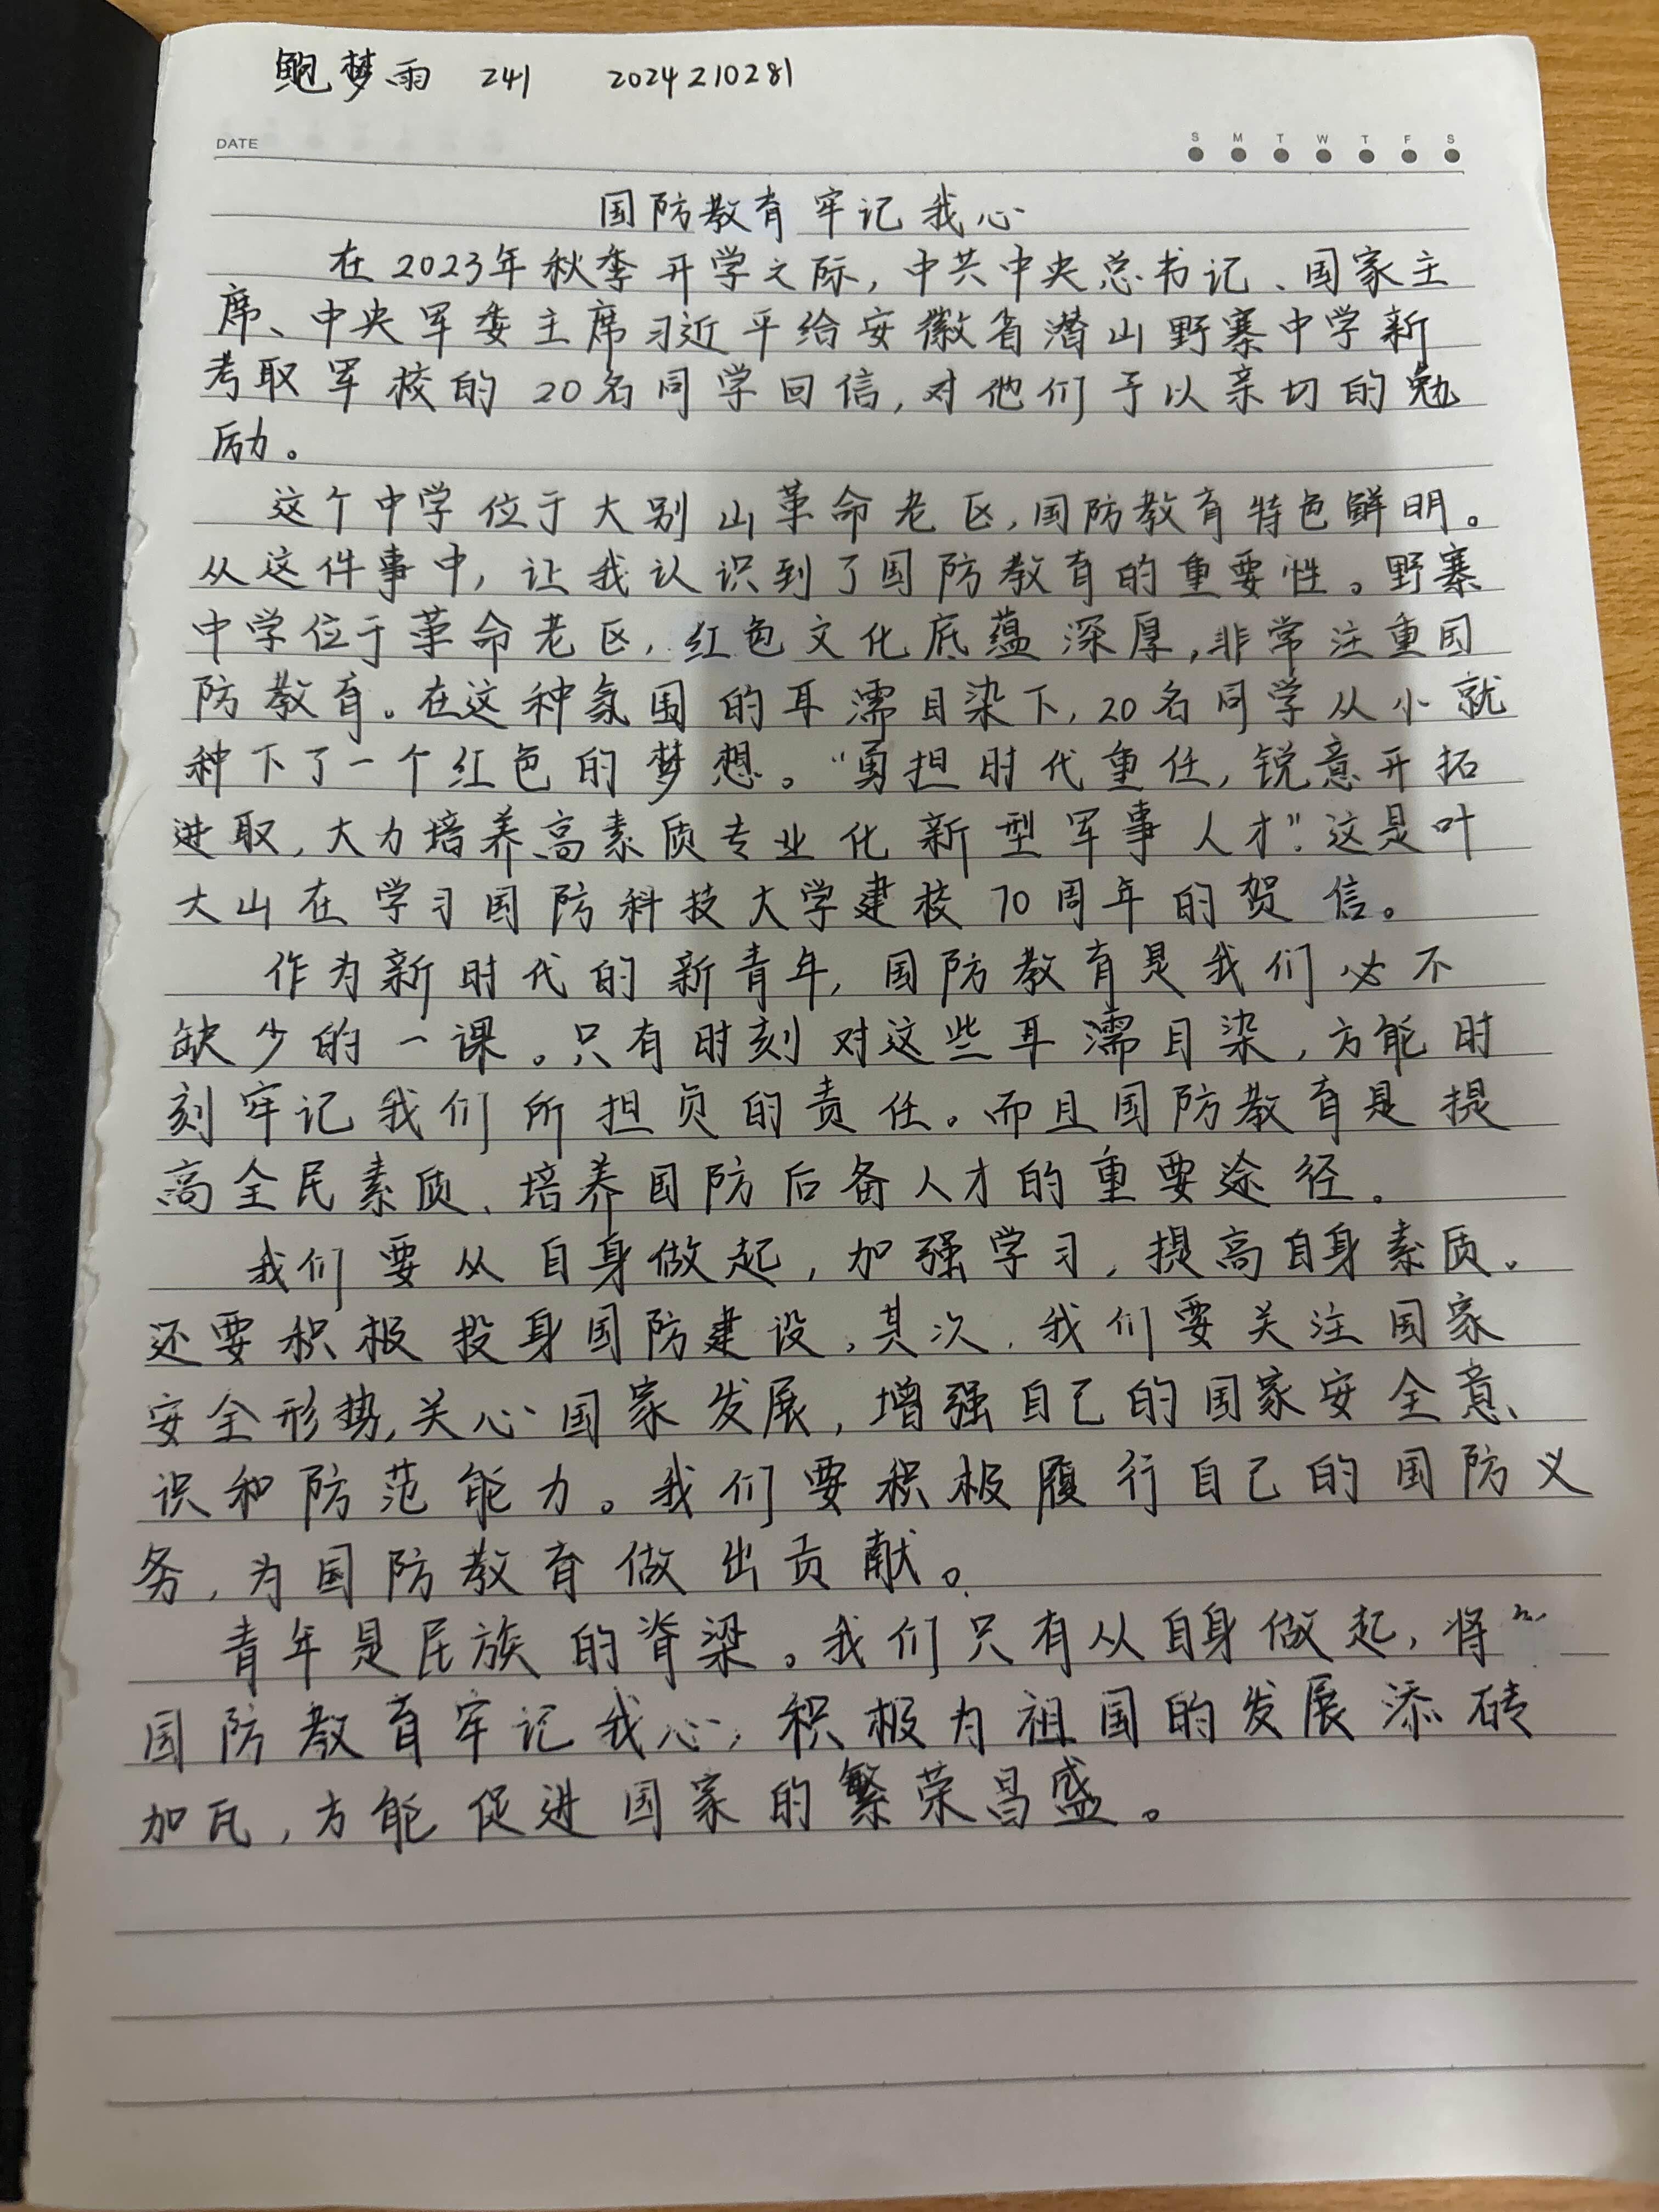 鲍梦雨 241 2024210281
DATE
S M T W T F S
国防教育牢记我心
在2023年秋季开学之际,中共中央总书记、国家主
席、中央军委主席习近平给安徽省潜山野寨中学新
考取军校的20名同学回信,对他们予以亲切的勉
励。
这个中学位于大别山革命老区,国防教育特色鲜明。
从这件事中,让我认识到了国防教育的重要性。野寨
中学位于革命老区,红色文化底蕴深厚,非常注重国
防教育。在这种氛围的耳濡目染下,20名同学从小就
种下了一个红色的梦想。“勇担时代重任,锐意开拓
进取,大力培养高素质专业化新型军事人才”.这是叶
大山在学习国防科技大学建校70周年的贺信。
作为新时代的新青年,国防教育是我们必不
缺少的一课。只有时刻对这些耳濡目染,方能时
刻牢记我们所担负的责任。而且国防教育是提
高全民素质、培养国防后备人才的重要途径。
我们要从自身做起,加强学习,提高自身素质。
还要积极投身国防建设,其次,我们要关注国家
安全形势,关心国家发展,增强自己的国家安全意
识和防范能力。我们要积极履行自己的国防义
务,为国防教育做出贡献。
青年是民族的脊梁。我们只有从自身做起,将
国防教育牢记我心,积极为祖国的发展添砖
加瓦,方能促进国家的繁荣昌盛。